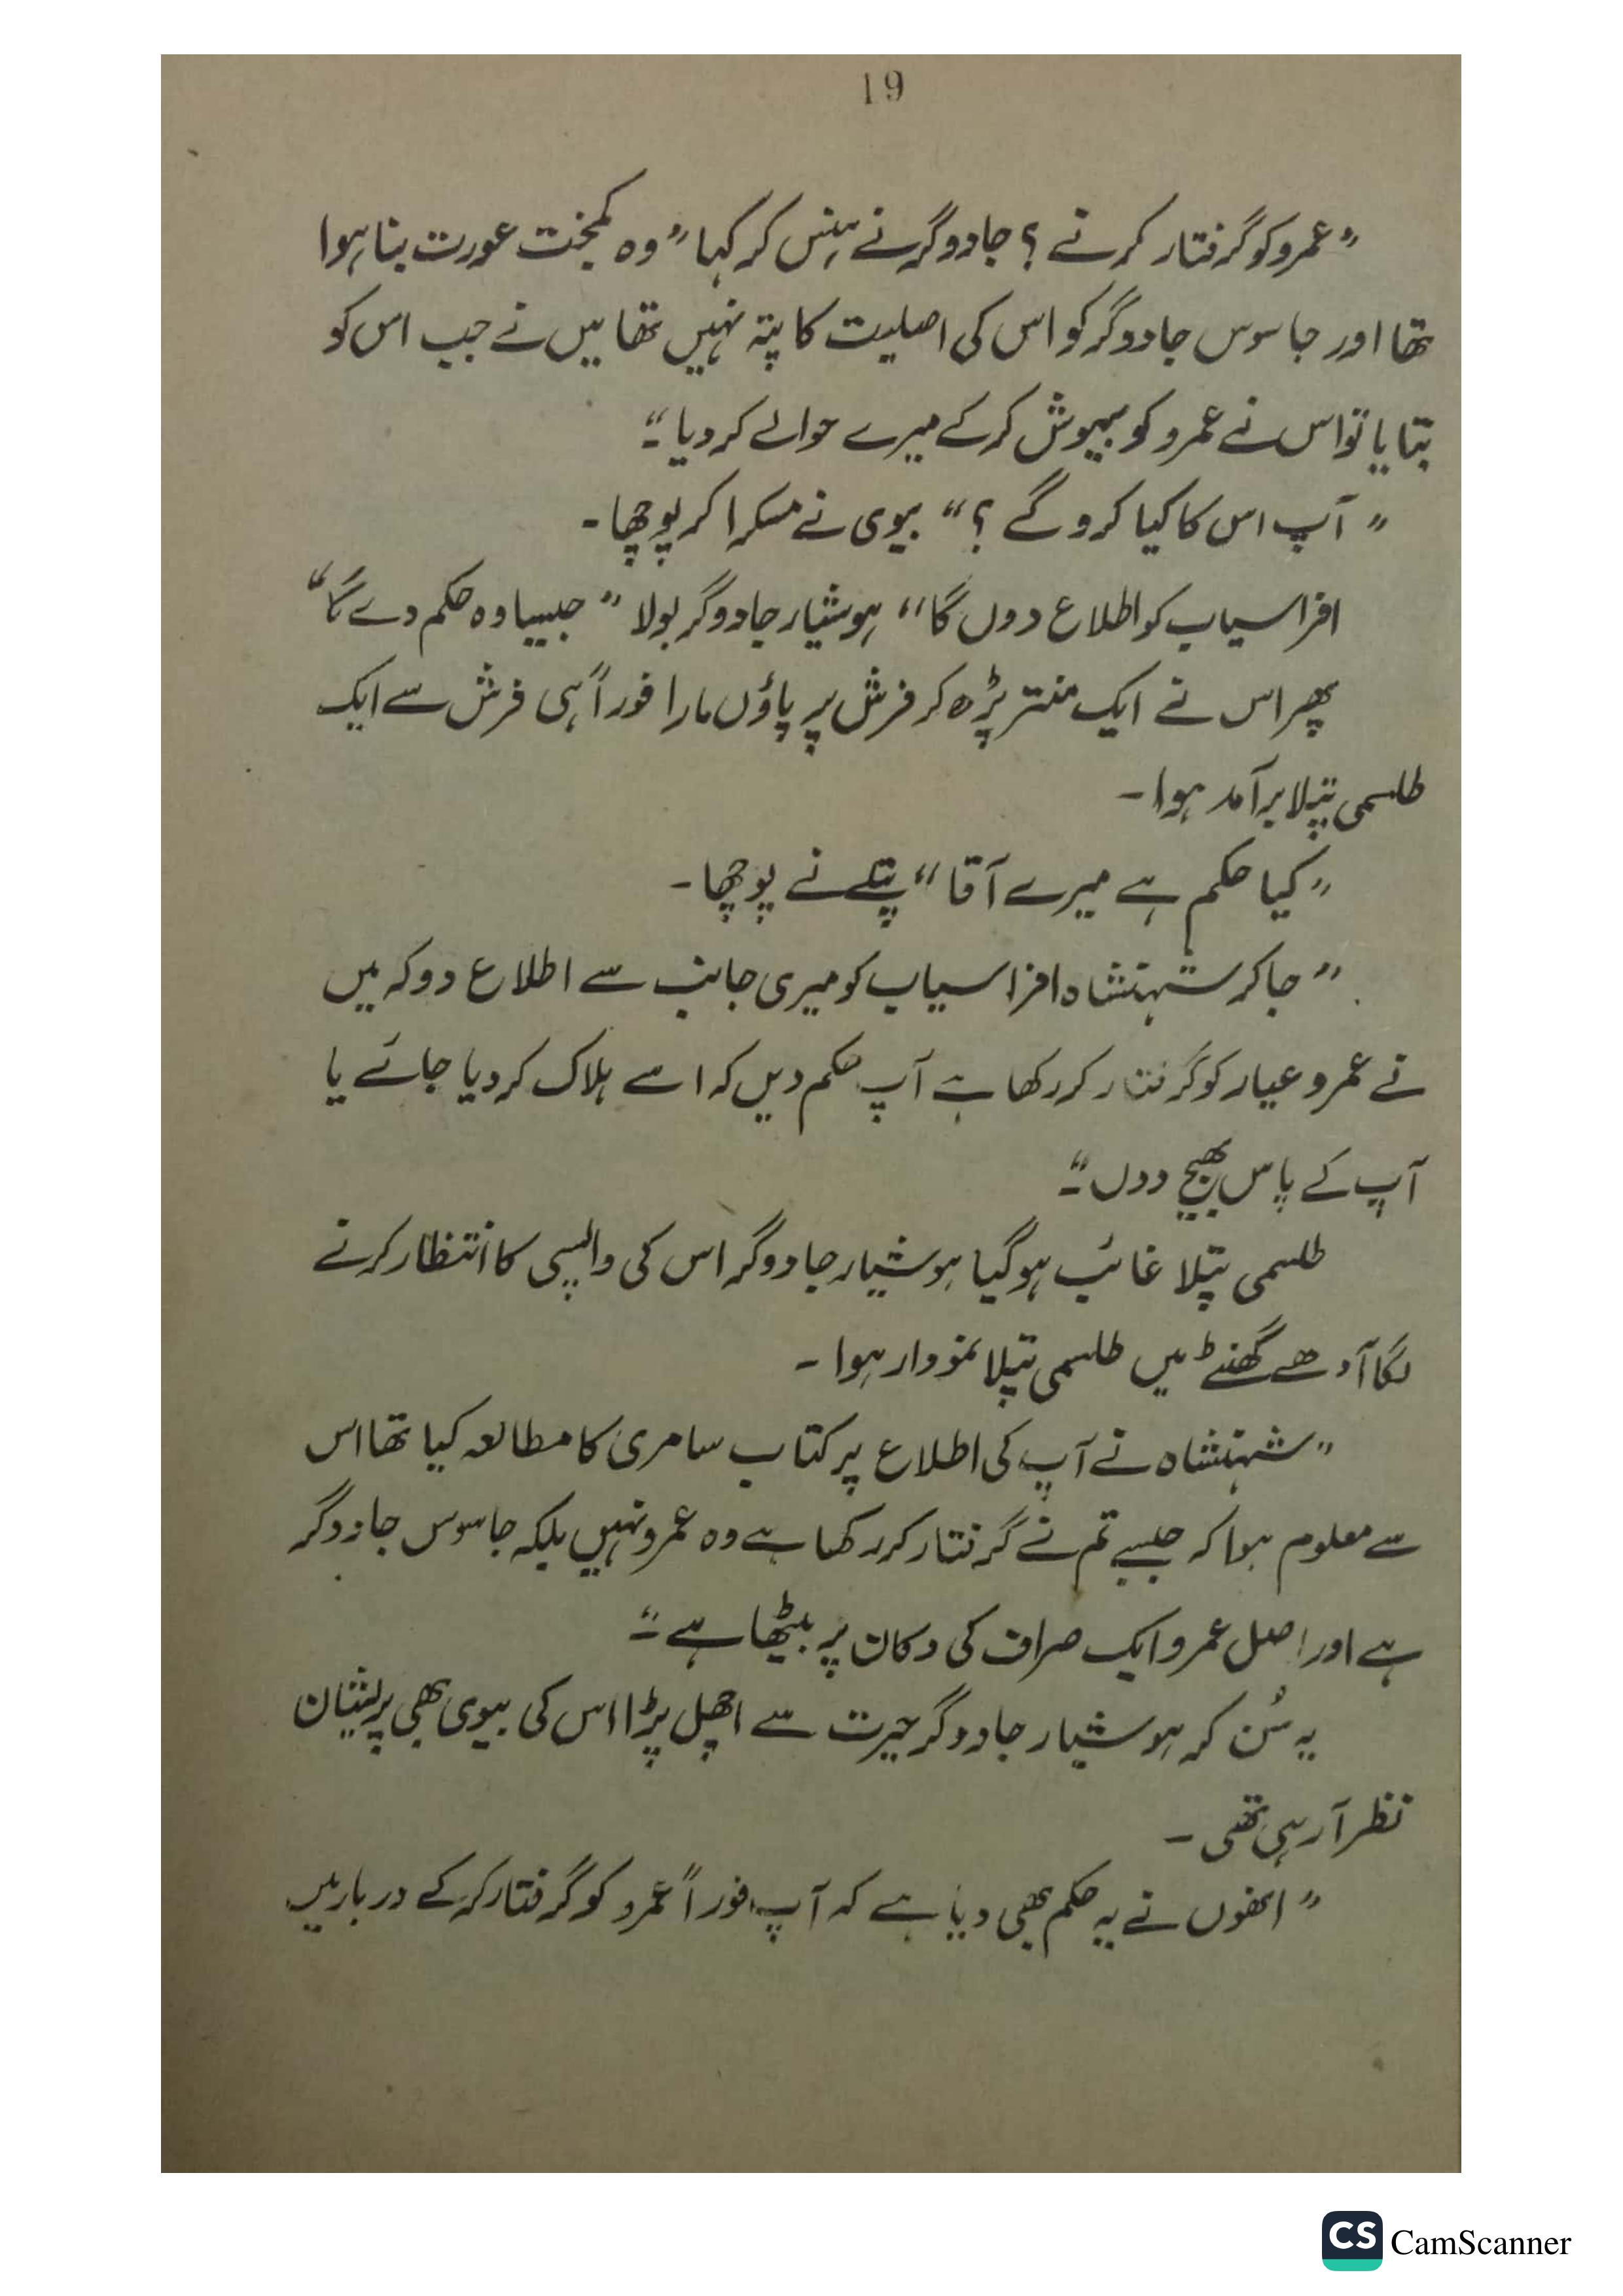 19
”عمرو کو گرفتار کرنے ؟ جادوگر نے ہنس کر کہا ” وہ کمبخت عورت بنا ہوا
تھا اور جاسوس جادوگر کو اس کی اصلیت کا پتہ نہیں تھا میں نے جب اس کو
بتایا تو اس نے عمرو کو بیہوش کرکے میرے حوالے کر دیا ۔“
” آپ اس کا کیا کرو گے ؟“ بیوی نے مسکرا کر پوچھا ۔
افراسیاب کو اطلاع دوں گا“ ہوشیار جادوگر بولا ” جیسا وہ حکم دے گا“
پھر اس نے ایک منتر پڑھ کر فرش پر پاؤں مارا فوراً ہی فرش سے ایک
طلسمی پتلا برآمد ہوا ۔
”کیا حکم ہے میرے آقا“ پتلے نے پوچھا ۔
” جا کر شہنشاہ افراسیاب کو میری جانب سے اطلاع دو کہ میں
نے عمرو عیار کو گرفتار کر رکھا ہے آپ حکم دیں کہ اسے ہلاک کر دیا جائے یا
آپ کے پاس بھیج دوں ۔“
طلسمی پتلا غائب ہو گیا ہوشیار جادوگر اس کی واپسی کا انتظار کرنے
لگا آدھے گھنٹے میں طلسمی پتلا نمودار ہوا ۔
”شہنشاہ نے آپ کی اطلاع پر کتاب سامری کا مطالعہ کیا تھا اس
سے معلوم ہوا کہ جسے تم نے گرفتار کر رکھا ہے وہ عمرو نہیں بلکہ جاسوس جادوگر
ہے اور اصل عمرو ایک صراف کی دکان پر بیٹھا ہے ۔“
یہ سُن کر ہوشیار جادوگر حیرت سے اچھل پڑا اس کی بیوی بھی پریشان
نظر آ رہی تھی ۔
” انھوں نے یہ حکم بھی دیا ہے کہ آپ فوراً عمرو کو گرفتار کر کے دربار میں
CS CamScanner